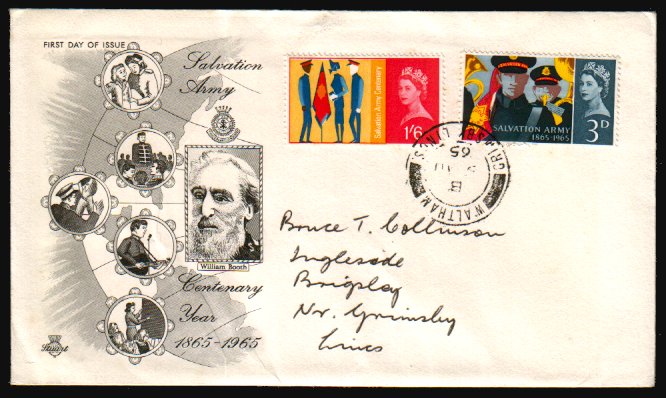 FIRST DAY OF ISSUE
Salvation
Army
William Booth
Centenary
Year
1865-1965
Stuart
Salvation Army Centenary
1/6
SALVATION ARMY
1865-1965
3D
WALTHAM
GRIMSBY LINCS
B
AU
65
Bruce T. Collinson
Ingleside
Brigsley
Nr. Grimsby
Lincs